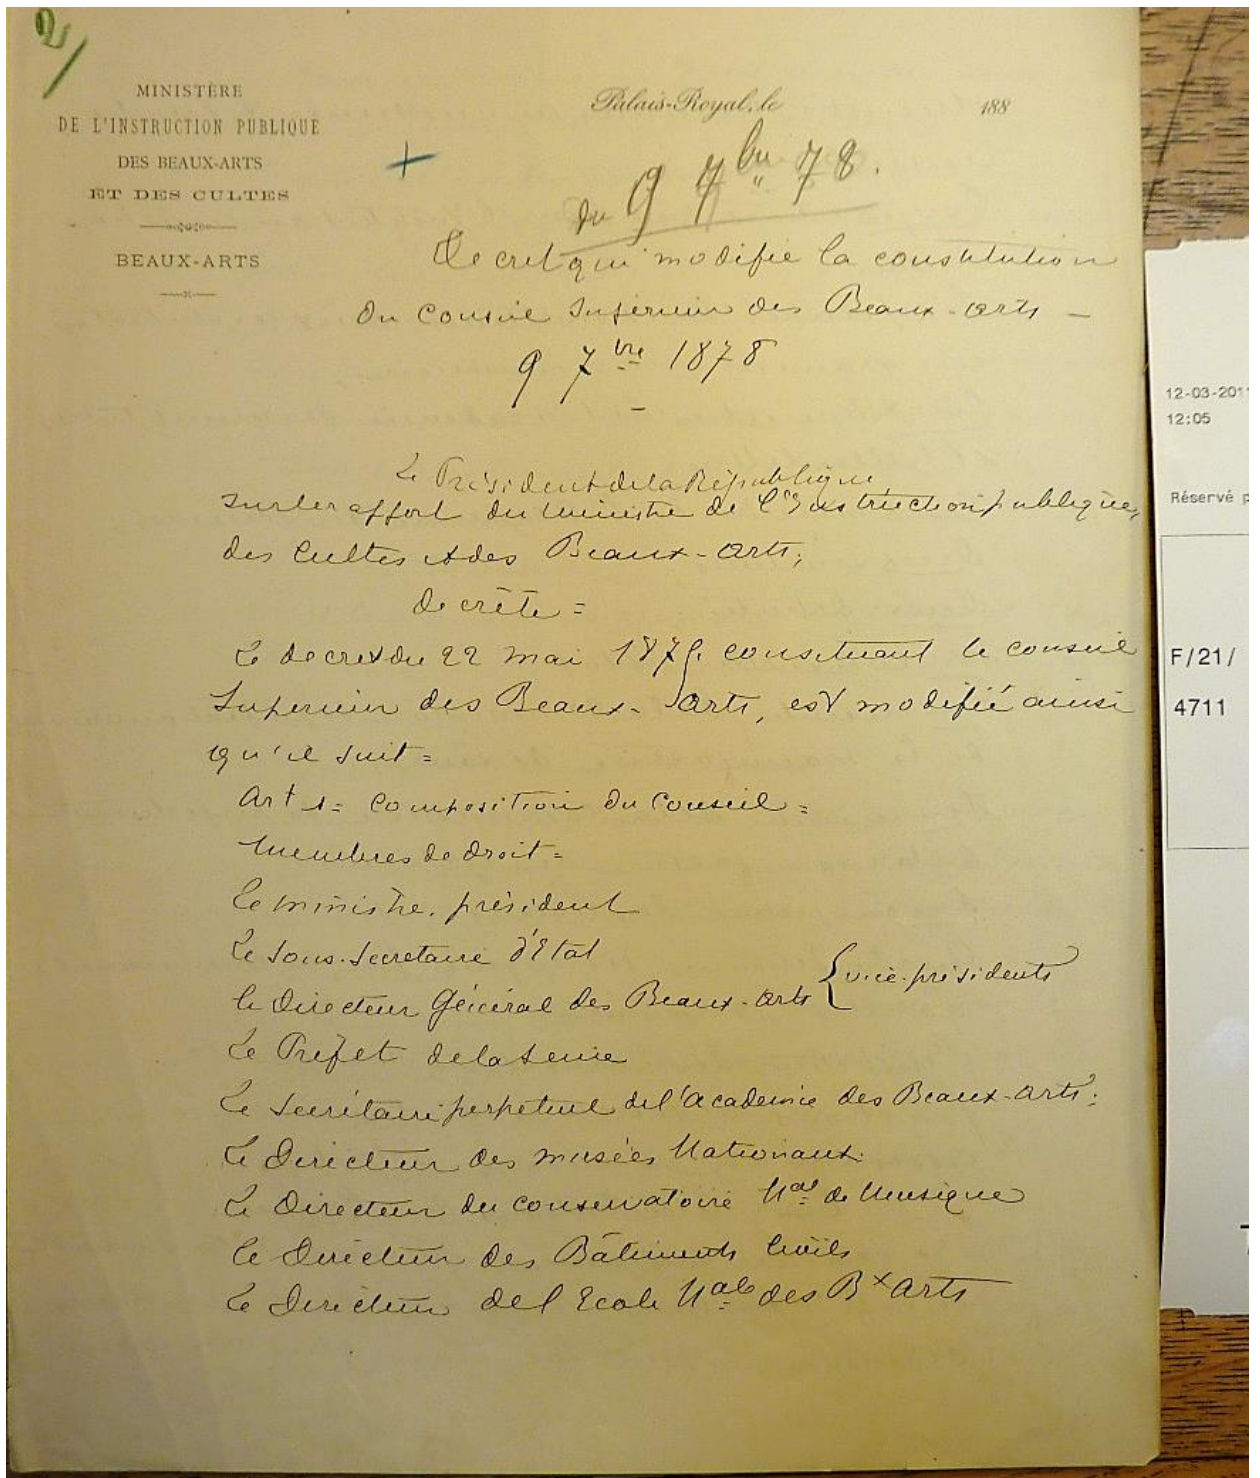 2/
MINISTÈRE
DE L'INSTRUCTION PUBLIQUE
DES BEAUX-ARTS
ET DES CULTES
BEAUX-ARTS
Palais-Royal, le 188
+
du 9 7bre 78.
Decret qui modifie la constitution
du Conseil Supérieur des Beaux-arts –
9 7bre 1878
Le Président de la République,
Sur le rapport du Ministre de l'Instruction publique,
des Cultes et des Beaux-Arts;
decrète =
Le decret du 22 mai 1875, constituant le conseil
Superieur des Beaux-Arts, est modifié ainsi
qu'il suit =
Art 1 = Composition du Conseil =
Membres de droit =
Le ministre, président
Le sous-secretaire d'Etat
le Directeur Général des Beaux-arts { vice-présidents
Le Préfet de la Seine
Le Secrétaire perpetuel de l'academie des Beaux-arts;
Le Directeur des musées Nationaux
Le Directeur du conservatoire Nal de Musique
le Directeur des Bâtiments Civils
Le Directeur de l Ecole Nale des Bx Arts
12-03-2011
12:05
Réservé p
F/21/
4711